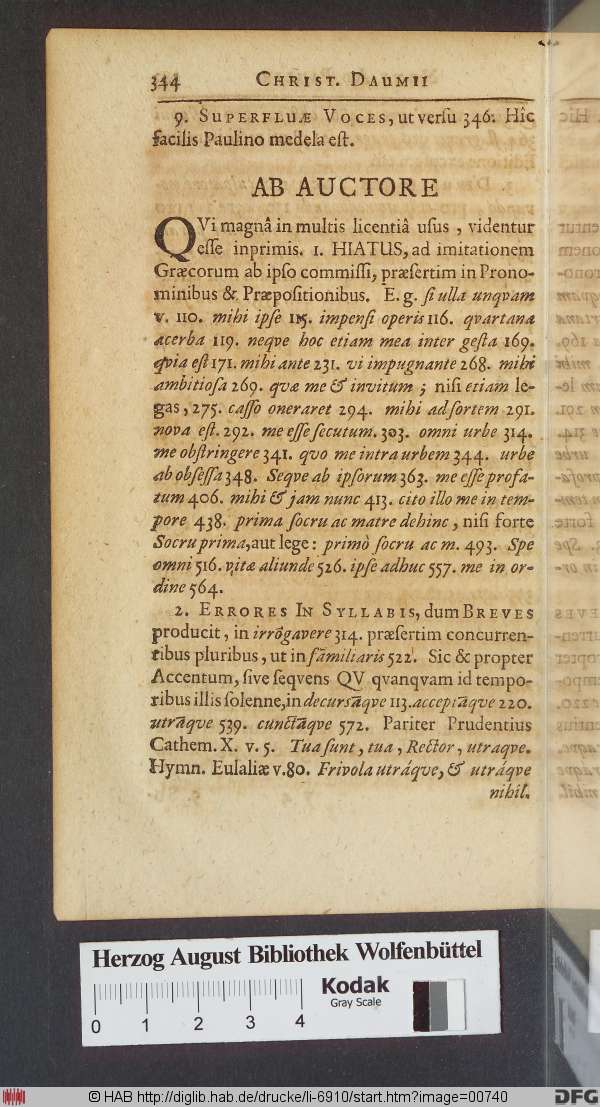 344 CHRIST. DAUMII
9. SUPERFLUÆ VOCES, ut versu 346. Hîc
facilis Paulino medela est.
AB AUCTORE
QVi magnâ in multis licentiâ usus, videntur
esse inprimis. 1. HIATUS, ad imitationem
Græcorum ab ipso commissi, præsertim in Prono-
minibus & Præpositionibus. E. g. si ulla unqvam
v. 110. mihi ipse 115. impensi operis 116. qvartana
acerba 119. neqve hoc etiam mea inter gesta 169.
qvia est 171. mihi ante 231. vi impugnante 268. mihi
ambitiosa 269. qvæ me & invitum; nisi etiam le-
gas, 275. casso oneraret 294. mihi ad sortem 291.
nova est. 292. me esse secutum. 303. omni urbe 314.
me obstringere 341. qvo me intra urbem 344. urbe
ab obsessa 348. Seqve ab ipsorum 363. me esse profa-
tum 406. mihi & jam nunc 413. cito illo me in tem-
pore 438. prima socru ac matre dehinc, nisi forte
Socru prima, aut lege: primò socru ac m. 493. Spe
omni 516. vitæ aliunde 526. ipse adhuc 557. me in or-
dine 564.
2. ERRORES IN SYLLABIS, dum BREVES
producit, in irrōgavere 314. præsertim concurren-
tibus pluribus, ut in fāmiliaris 522. Sic & propter
Accentum, sive seqvens QV qvanqvam id tempo-
ribus illis solenne, in decursāqve 113. acceptāqve 220.
utrāqve 539. cunctāqve 572. Pariter Prudentius
Cathem. X. v. 5. Tua sunt, tua, Rector, utraqve.
Hymn. Eulaliæ v. 80. Frivola utráqve, & utráqve
nihil.
Herzog August Bibliothek Wolfenbüttel
Kodak
Gray Scale
0 1 2 3 4
© HAB http://diglib.hab.de/drucke/li-6910/start.htm?image=00740
DFG